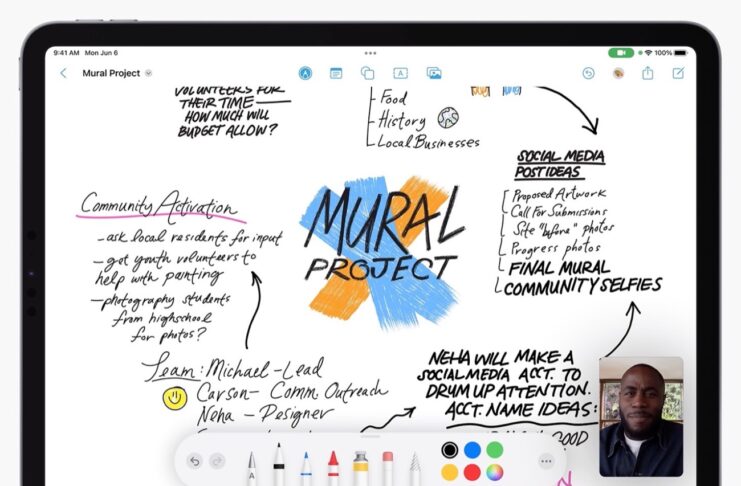 9:41 AM Mon Jun 6
100%
Mural Project
A
VOLUNTEERS FOR
THEIR TIME —
HOW MUCH WILL
BUDGET ALLOW?
- Food
- History
- Local Businesses
SOCIAL MEDIA
POST IDEAS
Proposed Artwork
Call For Submissions
Site "before" photos
Progress photos
FINAL MURAL
COMMUNITY SELFIES
Community Activation
- ask local residents for input
- get youth volunteers to
help with painting
- photography students
from highschool
for photos?
MURAL
PROJECT
Team: Michael - Lead
Carson - Comm. Outreach
Neha - Designer
NEHA WILL MAKE A
SOCIAL MEDIA ACCT. TO
DRUM UP ATTENTION.
ACCT. NAME IDEAS: